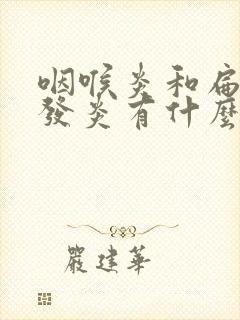 咽喉炎和扁
發炎有什麼
嚴建華